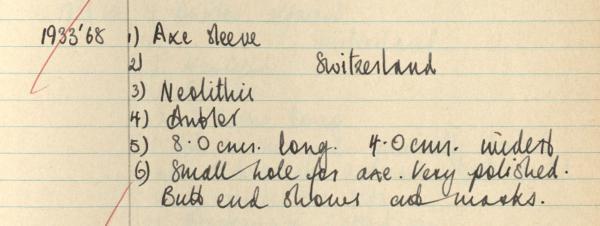 1933'68 1) Axe Sleeve
2) Switzerland
3) Neolithic
4) Antler
5) 8.0 cms. long. 4.0 cms. widest
6) Small hole for axe. Very polished.
Butt end shows cut marks.